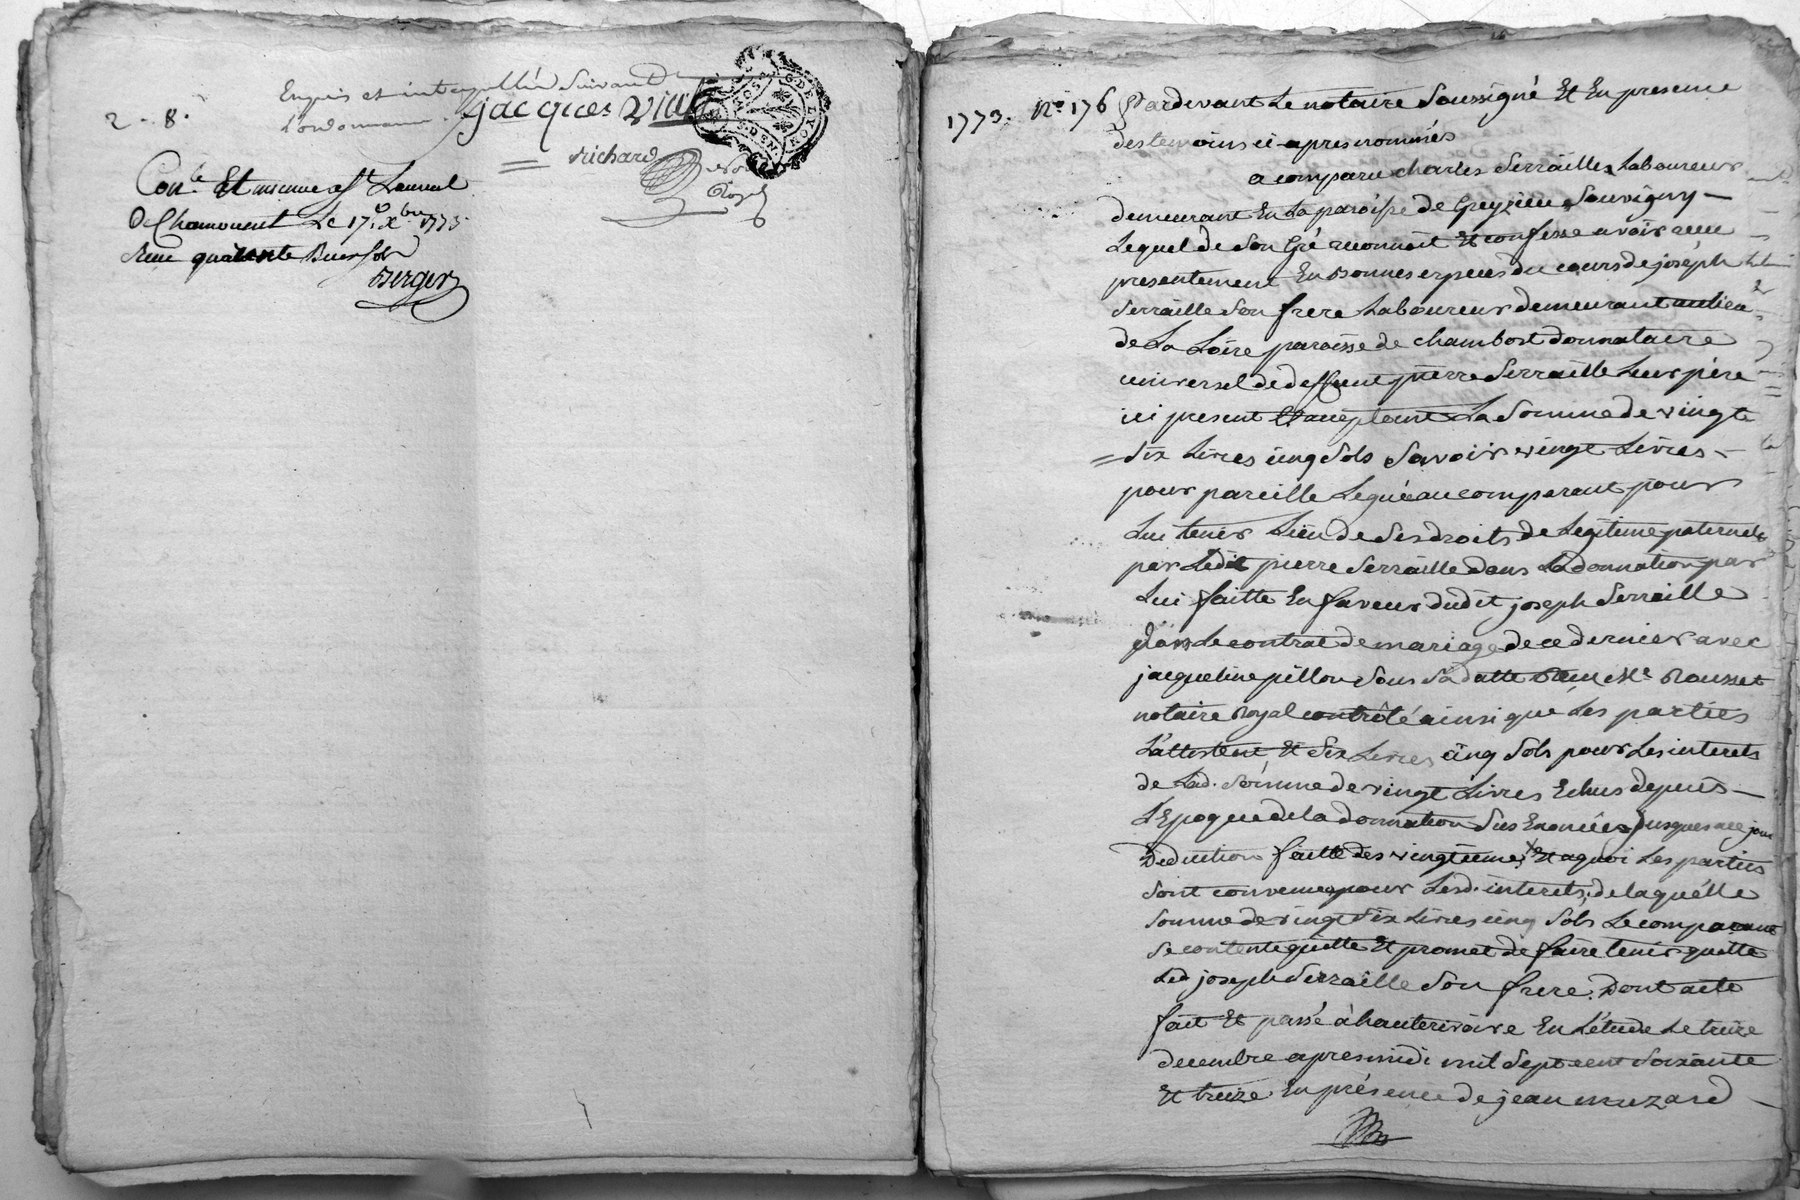 Enquis et interpellés suivant
L'ordonnance. jacques vial
2 - 8.
richard
Not
Royal
Con.le Et insinué a St. Laurent
de Chamousset Le 17.e Xbre 1773
Reçu quarante
Berger
G DE LYON
1773. No. 176 Pardevant Le notaire Soussigné Et En presence
des temoins ci apres nommés
a comparu charles Serraille Laboureur
demeurant En La paroisse de Souvigny
Lequel de Son Gré reconnoit Et confesse avoir reçu
presentement En Bonnes especes du cours de joseph
Serraille Son frere Laboureur demeurant au lieu
de La Loire paroisse de chambost donnataire
universel de deffunt pierre Serraille Leur pere
ici present Et acceptant La Somme de vingt
Six Livres cinq Sols Savoir vingt Livres
pour pareille Leguée au comparant pour
Lui tenir Lieu de Ses droits de Legitime paternels
par Ledit pierre Serraille dans La donnation par
Lui faitte En faveur dudit joseph Serraille
dans Le contrat de mariage de ce dernier avec
jacqueline pillon Sous Sa datte Reçu Me. Rousset
notaire Royal contrôlé ainsi que Les parties
L'attestent, Et Six Livres cinq Sols pour Les interets
de Lad. Somme de vingt Livres Echus depuis
L'Epoque de la donnation Sus Enoncée jusques a ce jour
Deduction faitte des vingtiemes, Et a quoi Les parties
Sont convenues pour Lesd. interets, de laquelle
Somme de vingt Six Livres cinq Sols Le comparant
Se contente quitte Et promet de faire tenir quitte
Led joseph Serraille Son frere. Dont acte
fait Et passé à hauterivoire En L'étude Le treize
decembre apres midi mil Sept cent Soixante
Et treize En présence de jean muzard